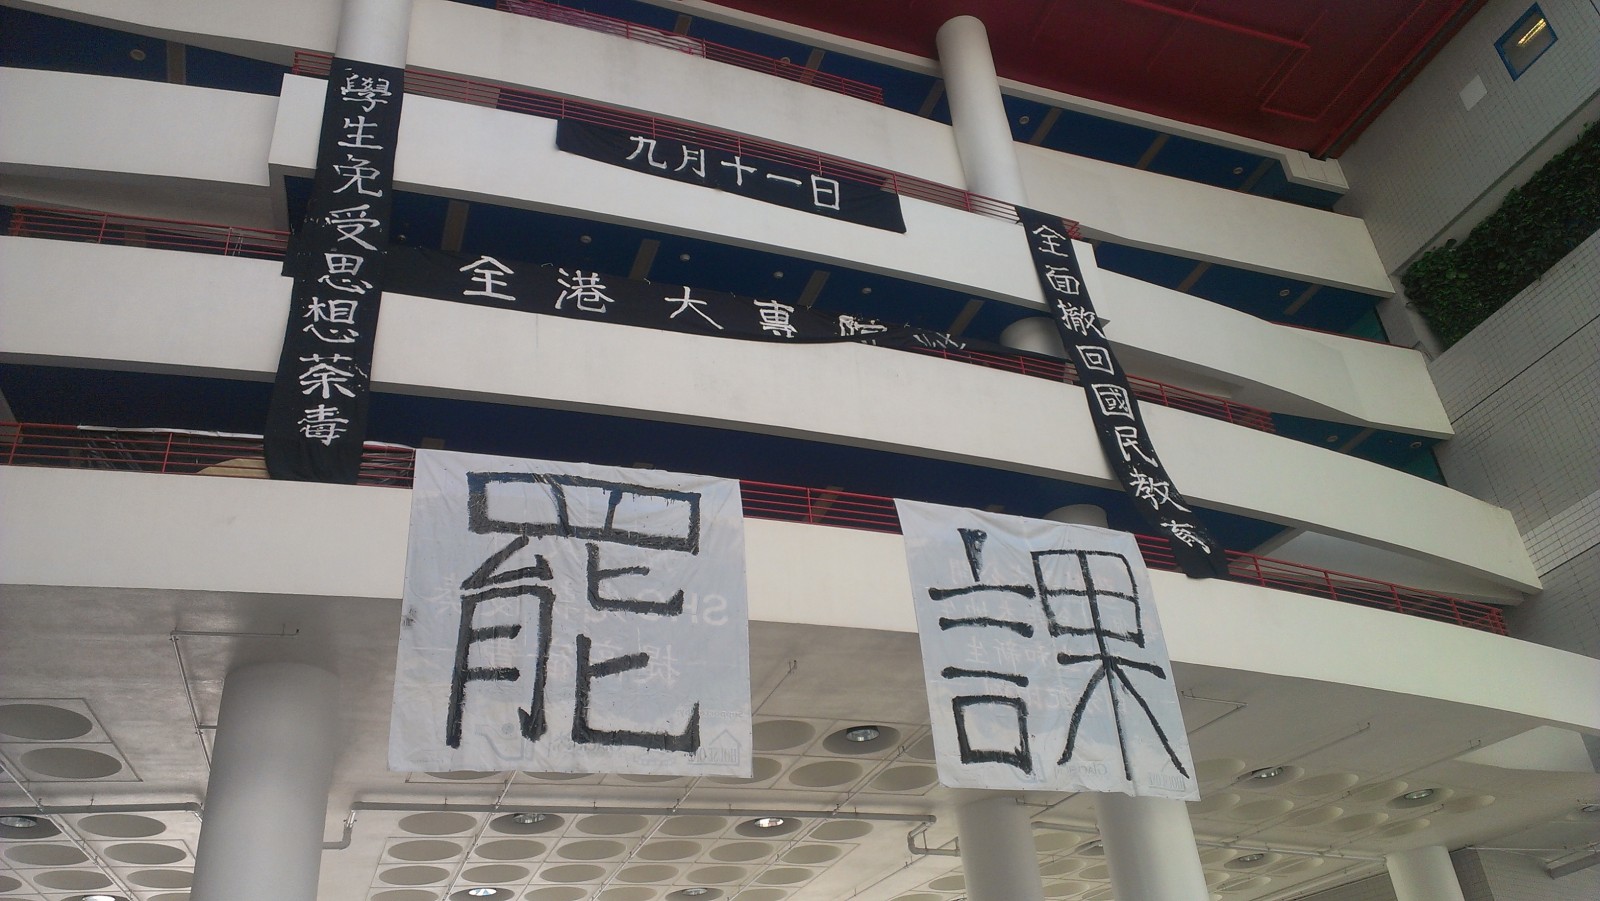 學生免受思想荼毒
九月十一日
全港大專院
全面撤回國民教育
罷課